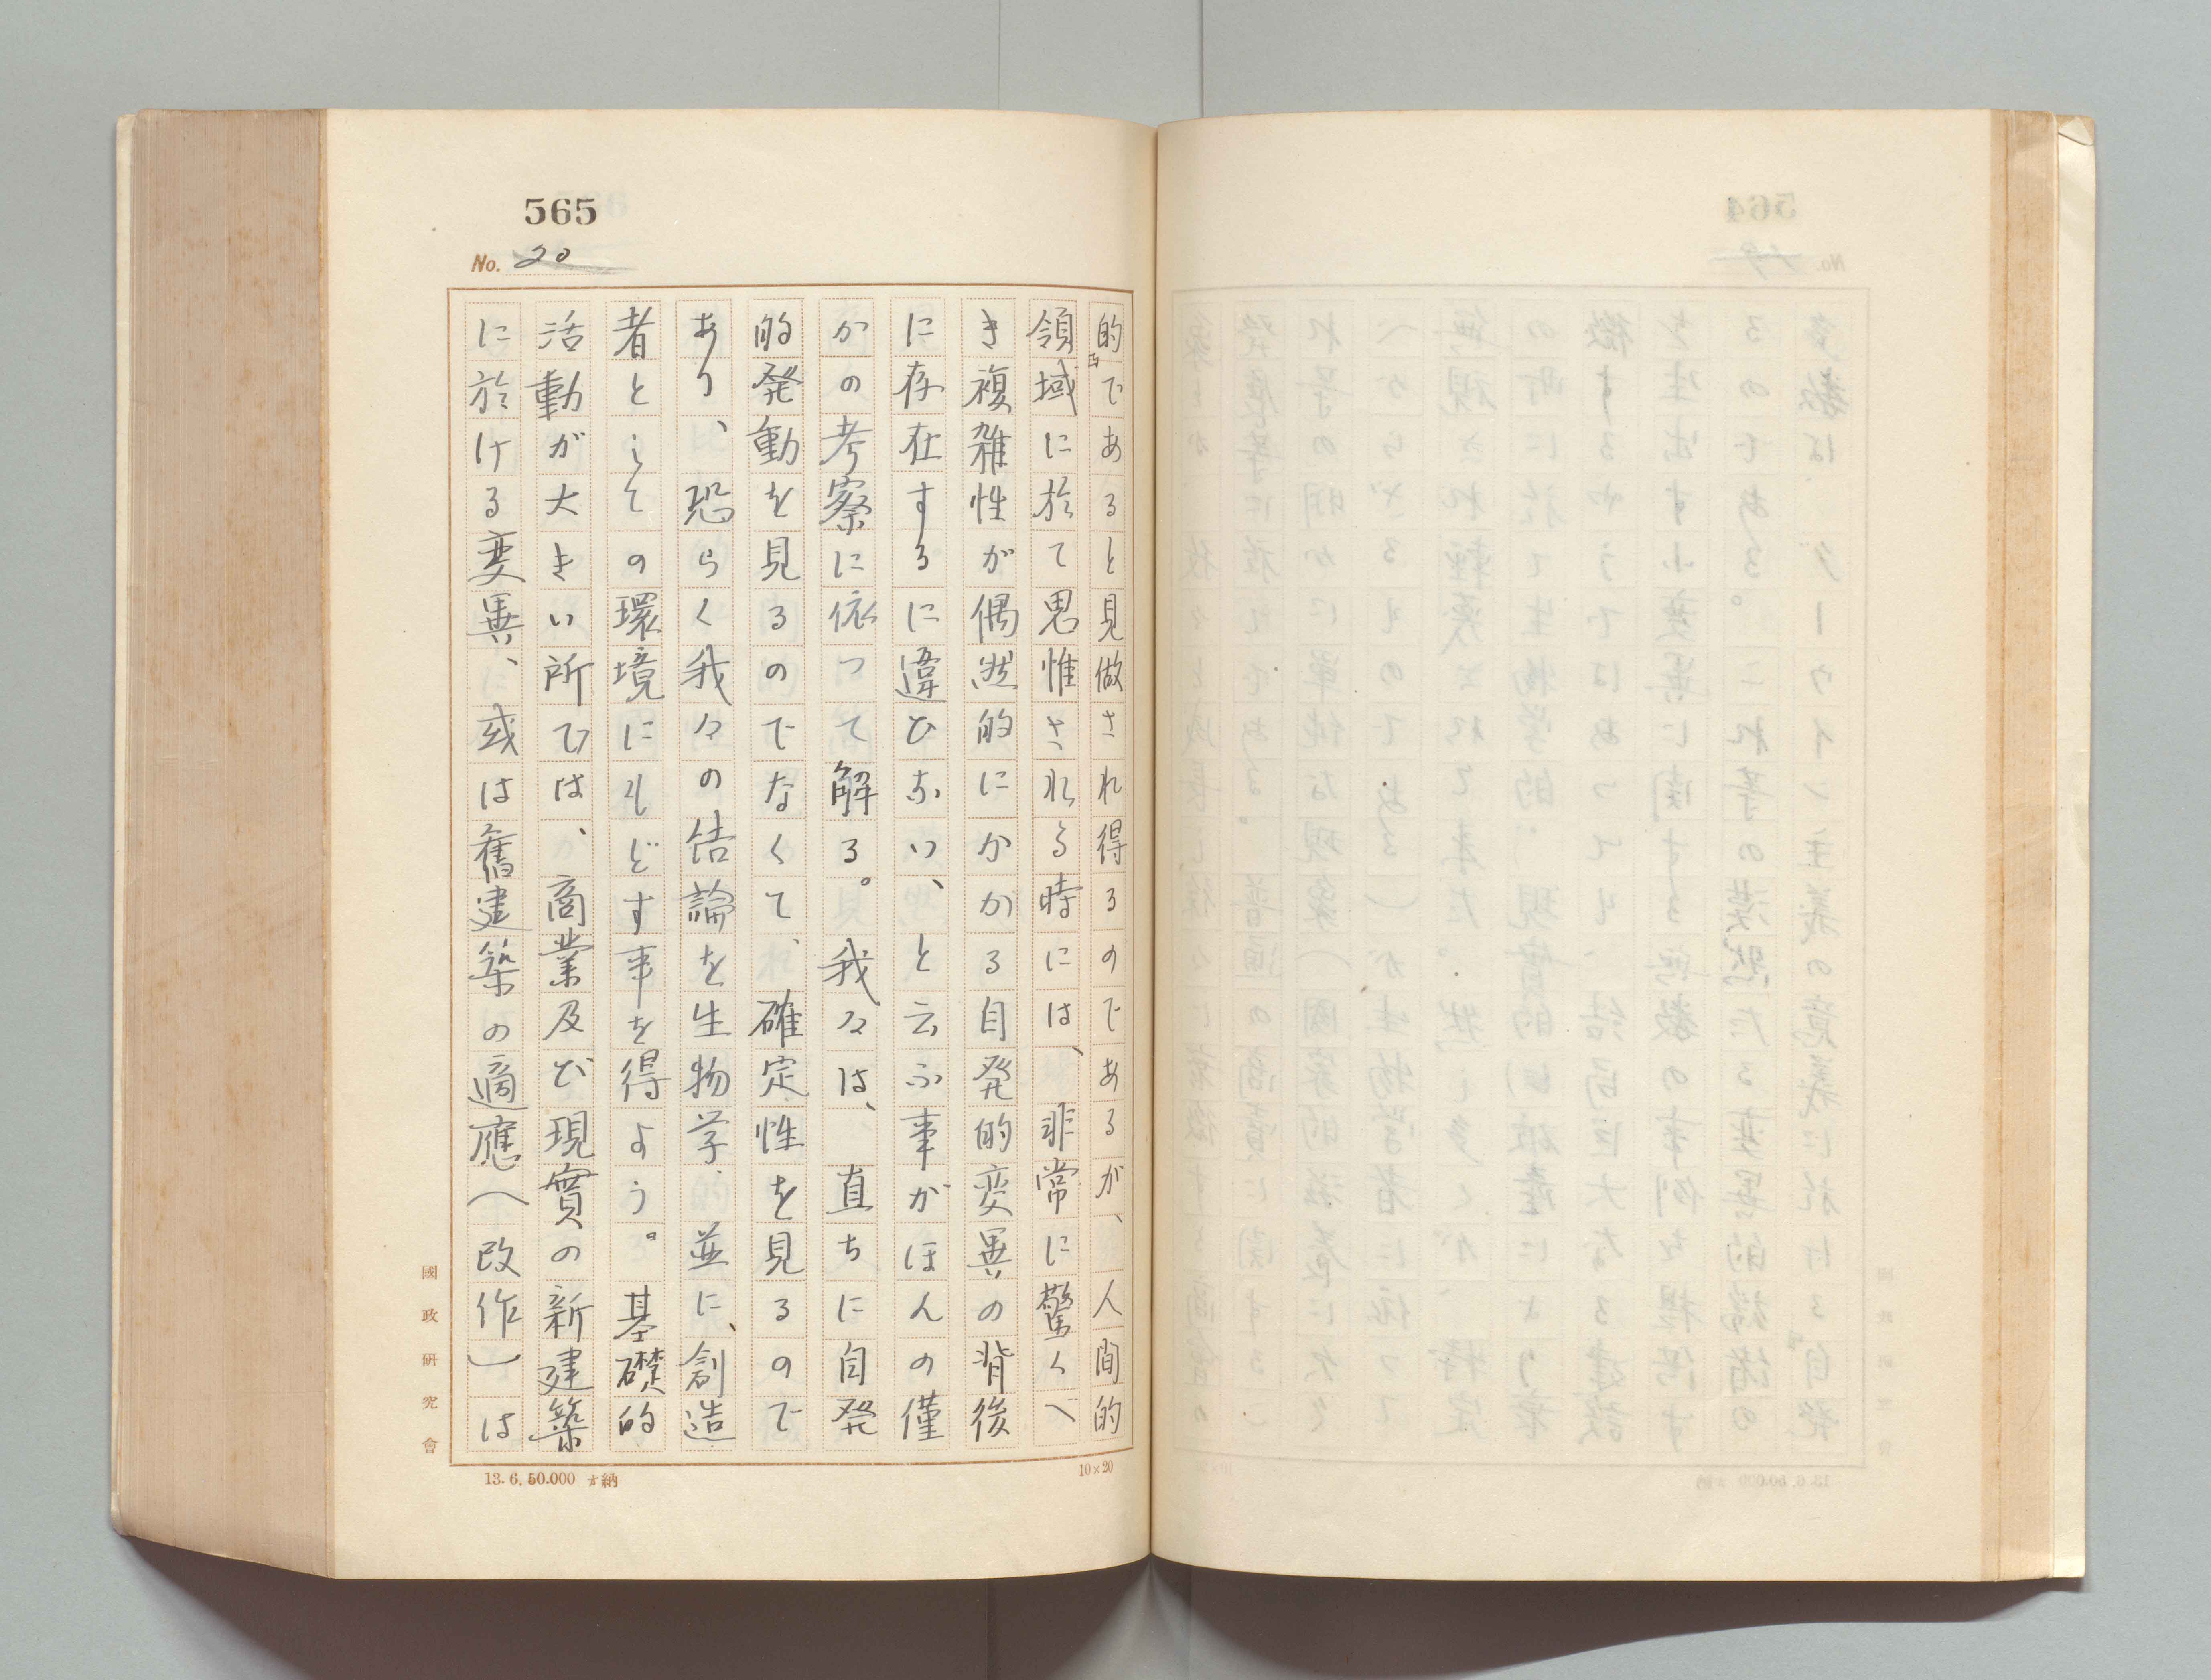 565
No. 20
的であると見做され得るのであるが、人間的
領域に於て思惟される時には、非常に驚くべ
き複雑性が偶然的にかかる自発的変異の背後
に存在するに違ひない、と云ふ事がほんの僅
かの考察に依つて解る。我々は、直ちに自発
的発動を見るのでなくて、確定性を見るので
あり、恐らく我々の結論を生物学、並に、創造
者としての環境にもどす事を得よう。基礎的
活動が大きい所では、商業及び現實の新建築
に於ける変異、或は舊建築の適應（改作）は
國政研究會
13. 6. 50.000
納
10×20